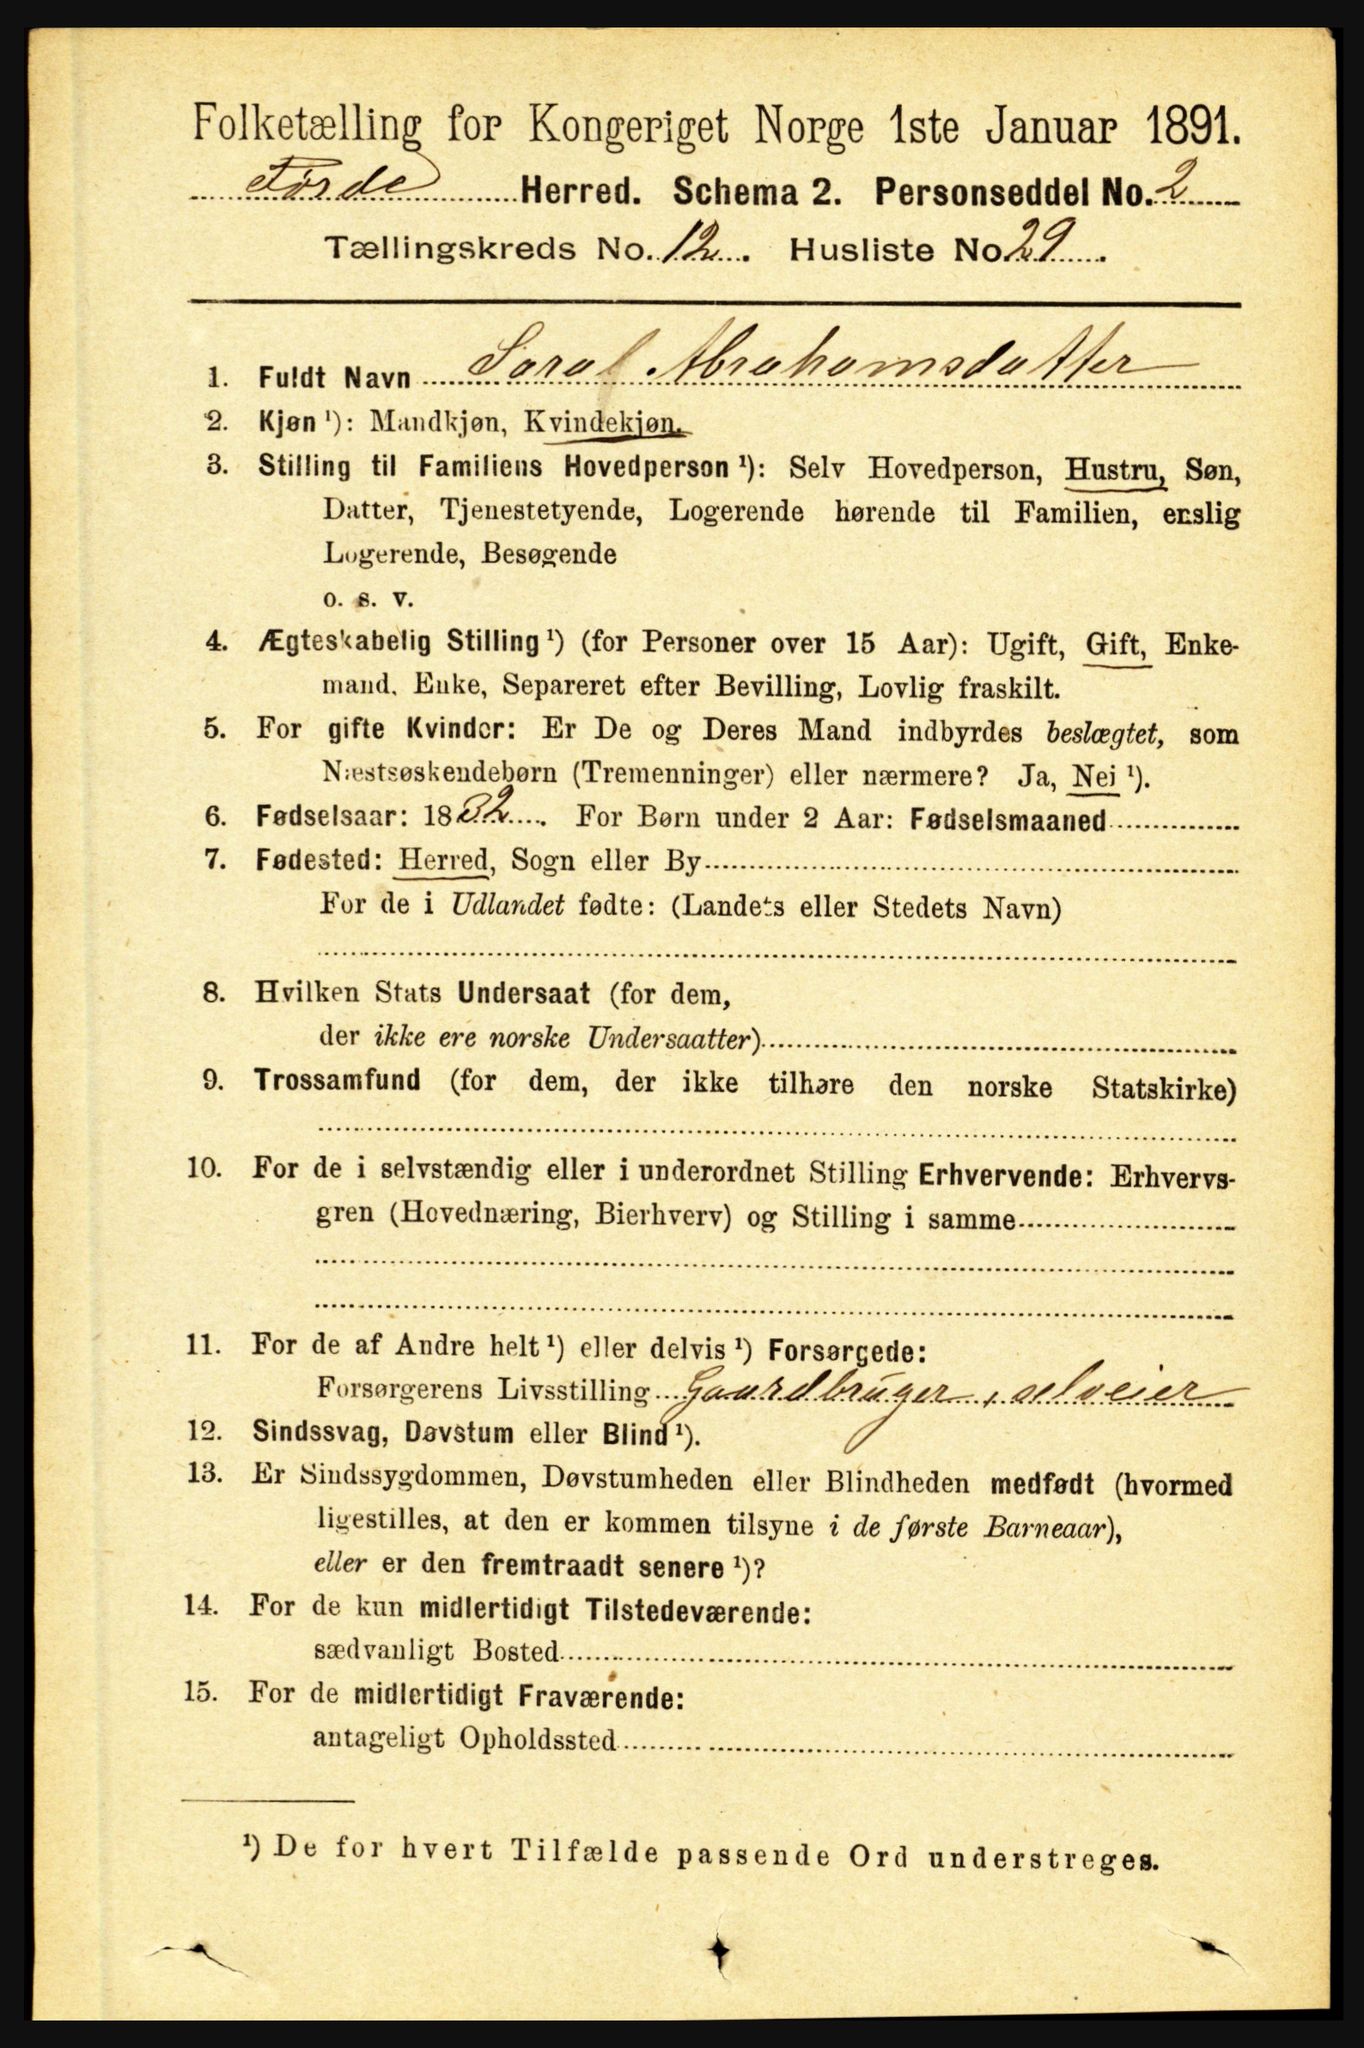 Folketælling for Kongeriget Norge 1ste Januar 1891.
Førde Herred. Schema 2. Personseddel No. 2
Tællingskreds No. 12. Husliste No. 29.
1. Fuldt Navn Abrahamsdatter
2. Kjøn ¹): Mandkjøn, Kvindekjøn.
3. Stilling til Familiens Hovedperson ¹): Selv Hovedperson, Hustru, Søn,
Datter, Tjenestetyende, Logerende hørende til Familien, enslig
Logerende, Besøgende
o. s. v.
4. Ægteskabelig Stilling ¹) (for Personer over 15 Aar): Ugift, Gift, Enke-
mand, Enke, Separeret efter Bevilling, Lovlig fraskilt.
5. For gifte Kvinder: Er De og Deres Mand indbyrdes beslægtet, som
Næstsøskendebørn (Tremenninger) eller nærmere? Ja, Nei ¹).
6. Fødselsaar: 1832. For Børn under 2 Aar: Fødselsmaaned
7. Fødested: Herred, Sogn eller By
For de i Udlandet fødte: (Landets eller Stedets Navn)
8. Hvilken Stats Undersaat (for dem,
der ikke ere norske Undersaatter)
9. Trossamfund (for dem, der ikke tilhøre den norske Statskirke)
10. For de i selvstændig eller i underordnet Stilling Erhvervende: Erhvervs-
gren (Hovednæring, Bierhverv) og Stilling i samme
11. For de af Andre helt ¹) eller delvis ¹) Forsørgede:
Forsørgerens Livsstilling Gaardbruger, selveier
12. Sindssvag, Døvstum eller Blind ¹).
13. Er Sindssygdommen, Døvstumheden eller Blindheden medfødt (hvormed
ligestilles, at den er kommen tilsyne i de første Barneaar),
eller er den fremtraadt senere ¹)?
14. For de kun midlertidigt Tilstedeværende:
sædvanligt Bosted
15. For de midlertidigt Fraværende:
antageligt Opholdssted
¹) De for hvert Tilfælde passende Ord understreges.